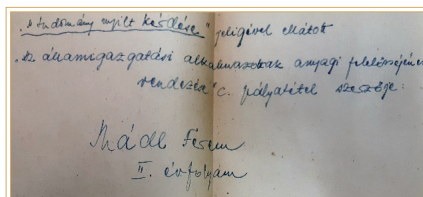 „A tudomány nyílt kérdése" jeligével ellátott
„Az államigazgatási alkalmazottak anyagi felelősségének
rendezése" c. pályatétel szerzője:
Mádl Ferenc
II. évfolyam